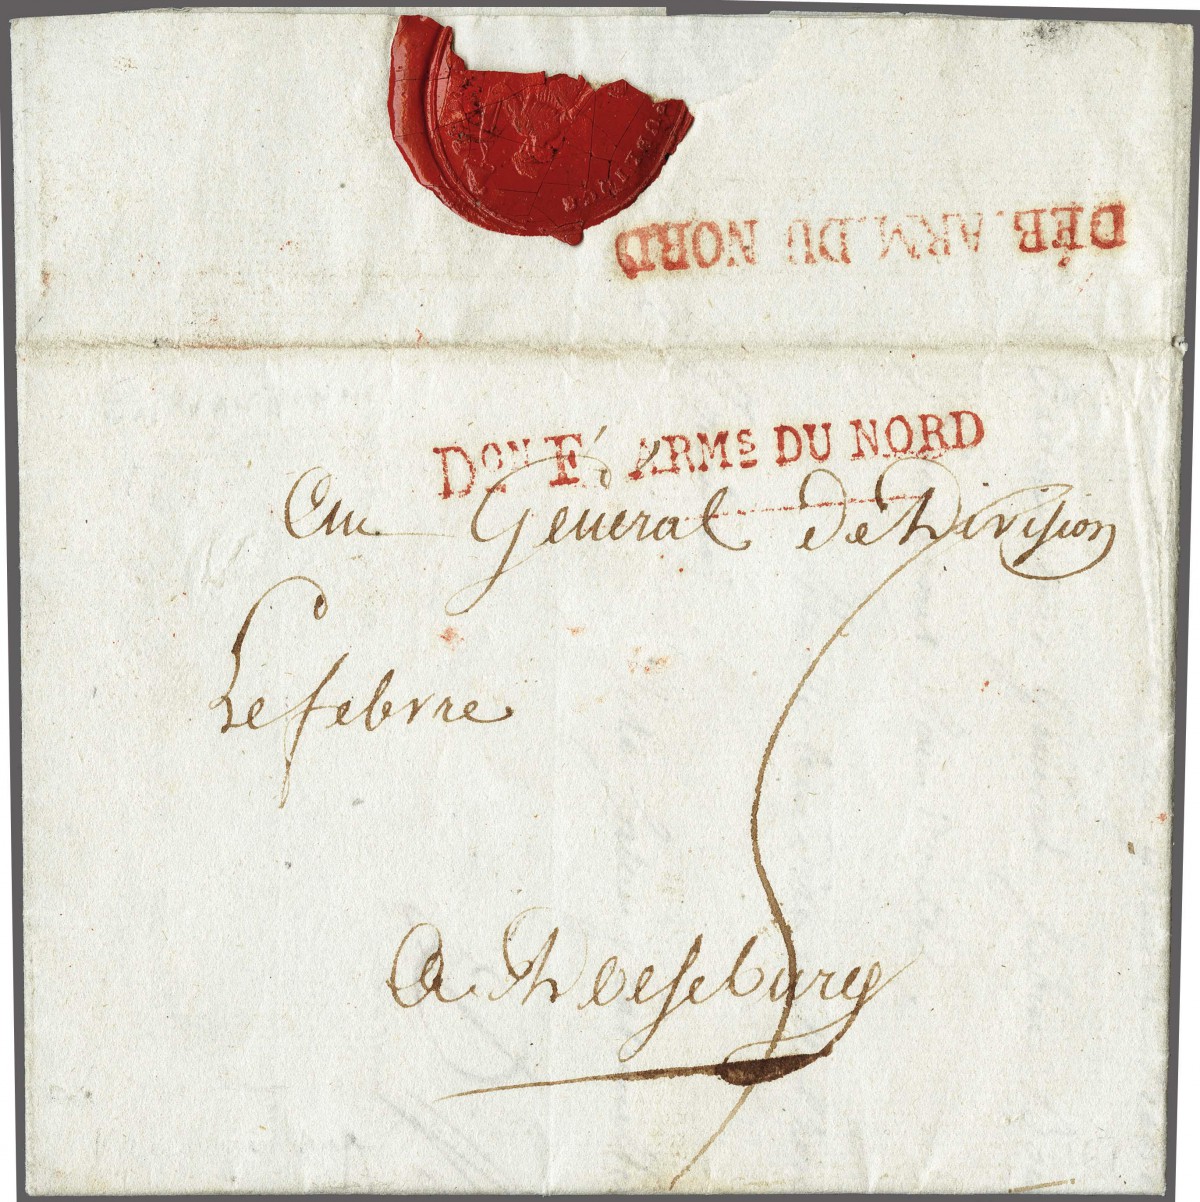 DÉB. ARM. DU NORD
Don F ARMs DU NORD
Au Général de Division
Lefebvre
A Doesebürg